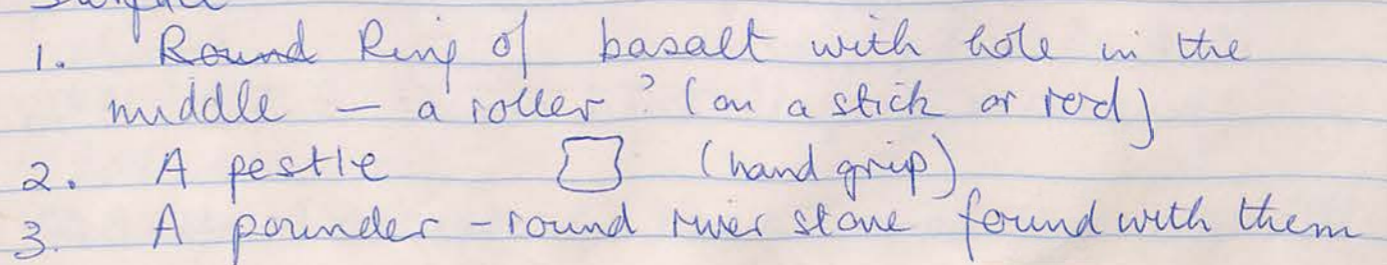 Surface
1. Round Ring of basalt with hole in the
middle – a roller? (on a stick or rod)
2. A pestle (hand grip)
3. A pounder – round river stone found with them